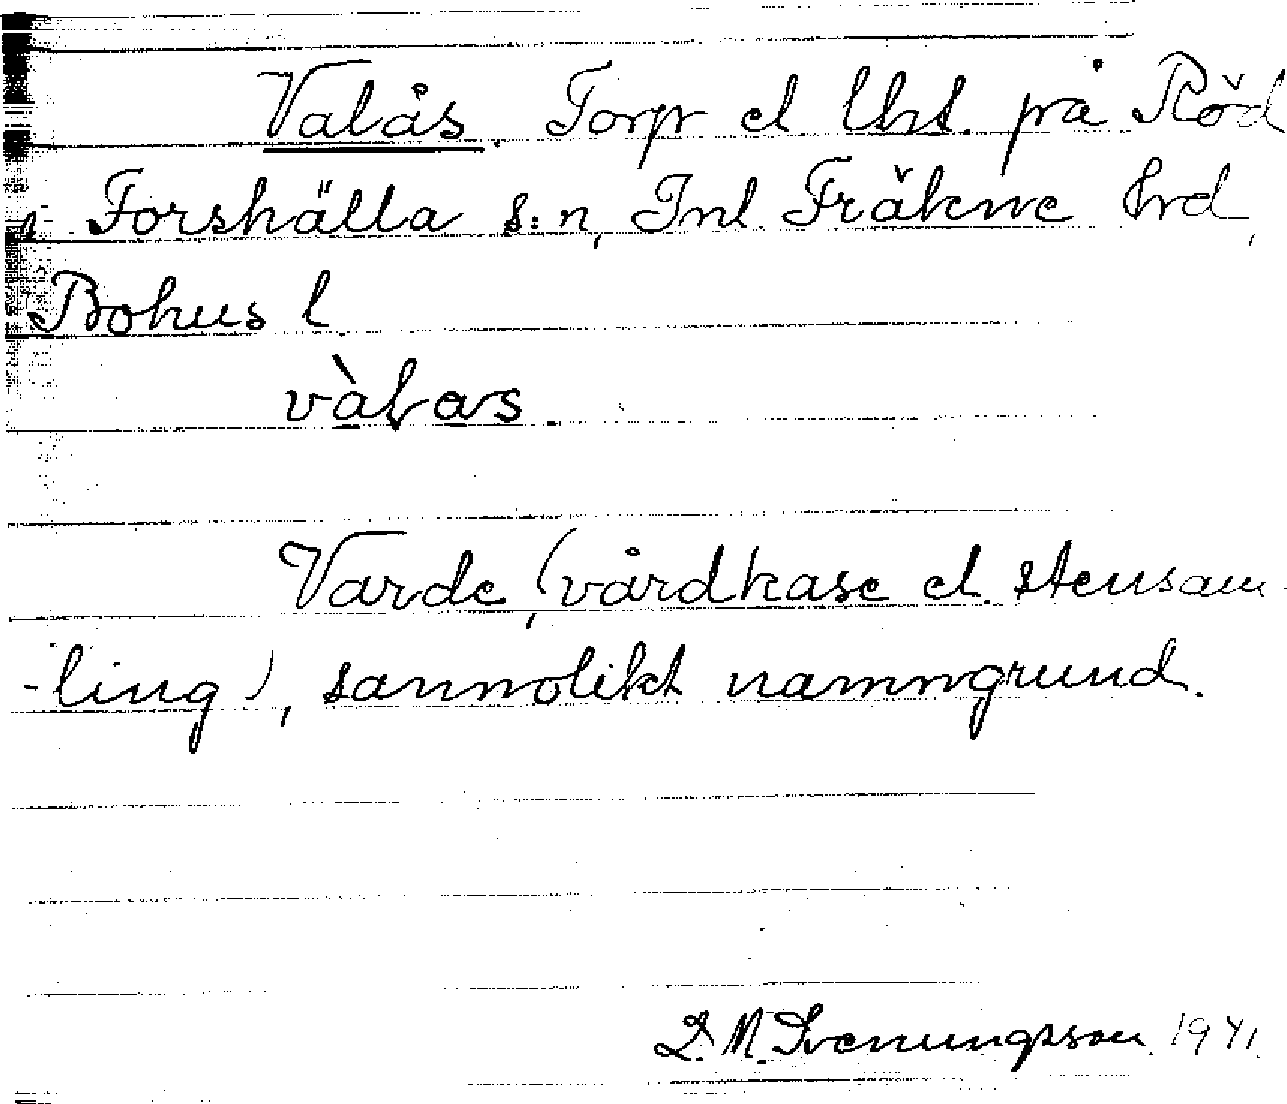 Valås Torp el lht. på Röd
i Forshälla s:n, Inl. Fräkne hrd,
Bohus l
vàlas
Varde, (vårdkase el. stensam-
-ling), sannolikt namngrund.
M. Svenungsson 1941